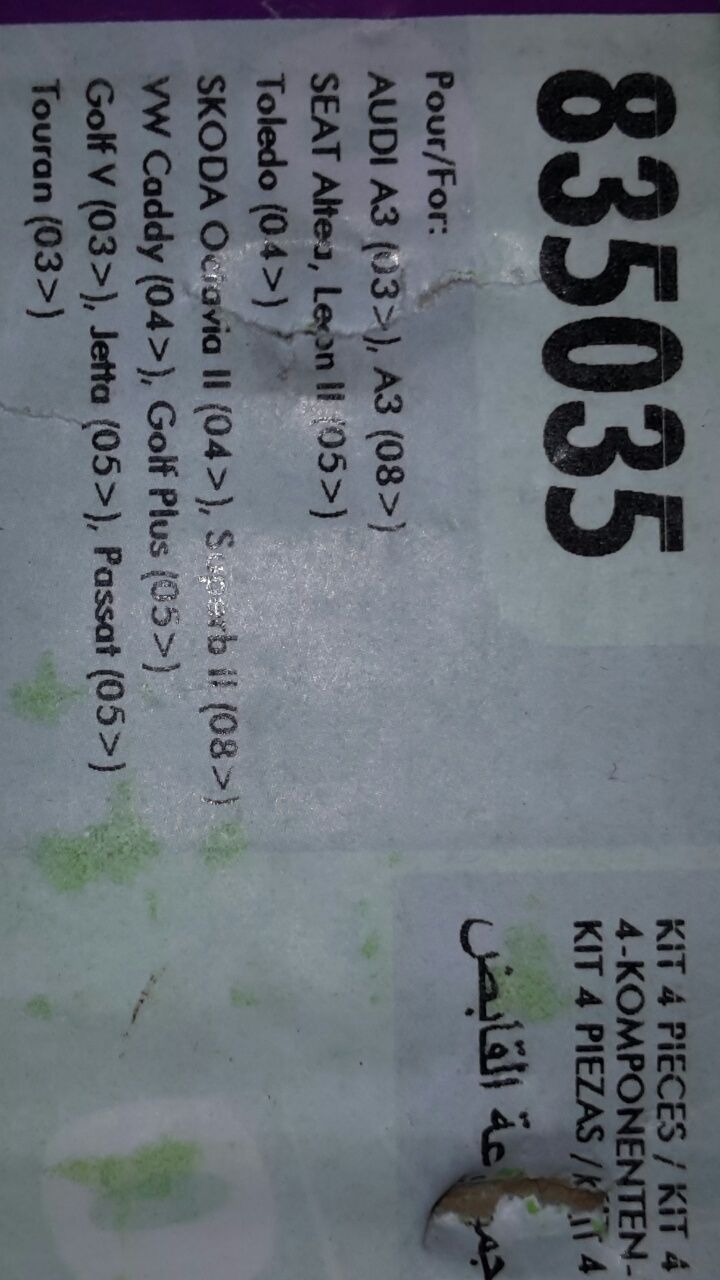 835035
Pour/For:
AUDI A3 (03>), A3 (08>)
SEAT Altea, Leon II (05>)
Toledo (04>)
SKODA Octavia II (04>), Superb II (08>)
VW Caddy (04>), Golf Plus (05>)
Golf V (03>), Jetta (05>), Passat (05>)
Touran (03>)
KIT 4 PIECES / KIT 4
4-KOMPONENTEN-
KIT 4 PIEZAS / KIT 4
القابض